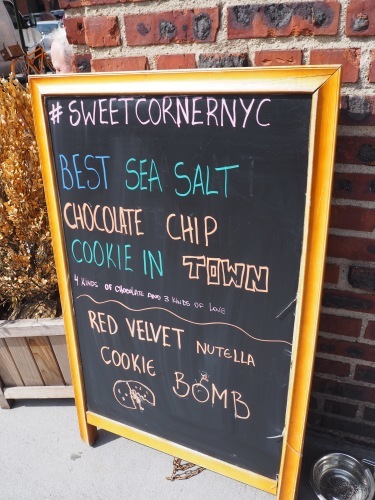 #SWEETCORNERNYC
BEST SEA SALT
CHOCOLATE CHIP
COOKIE IN TOWN
4 KINDS OF CHOCOLATE AND 3 KINDS OF LOVE
RED VELVET NUTELLA
COOKIE BOMB